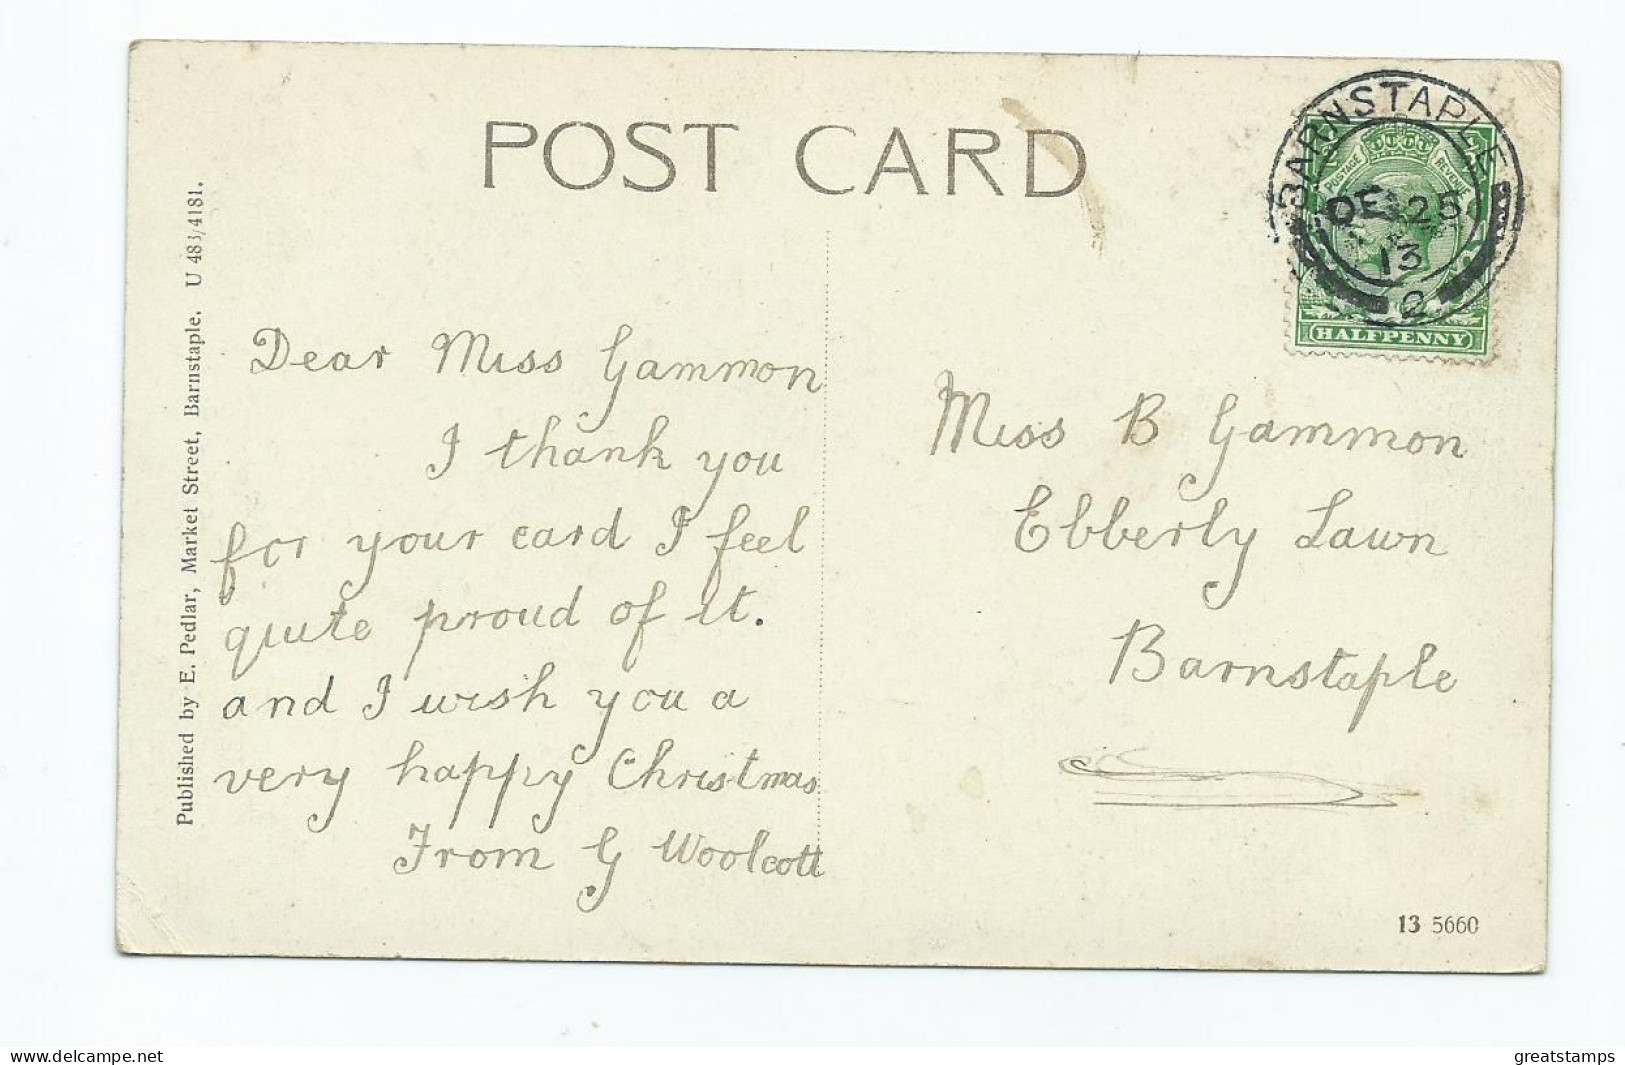 POST CARD
BARNSTAPLE
DE 25
13
2
POSTAGE REVENUE
HALFPENNY
Published by E. Pedlar, Market Street, Barnstaple.
Dear Miss Gammon
I thank you
for your card I feel
quite proud of it.
and I wish you a
very happy Christmas
From G Woolcott
Miss B Gammon
Ebberly Lawn
Barnstaple
13 5660
www.delcampe.net
greatstamps